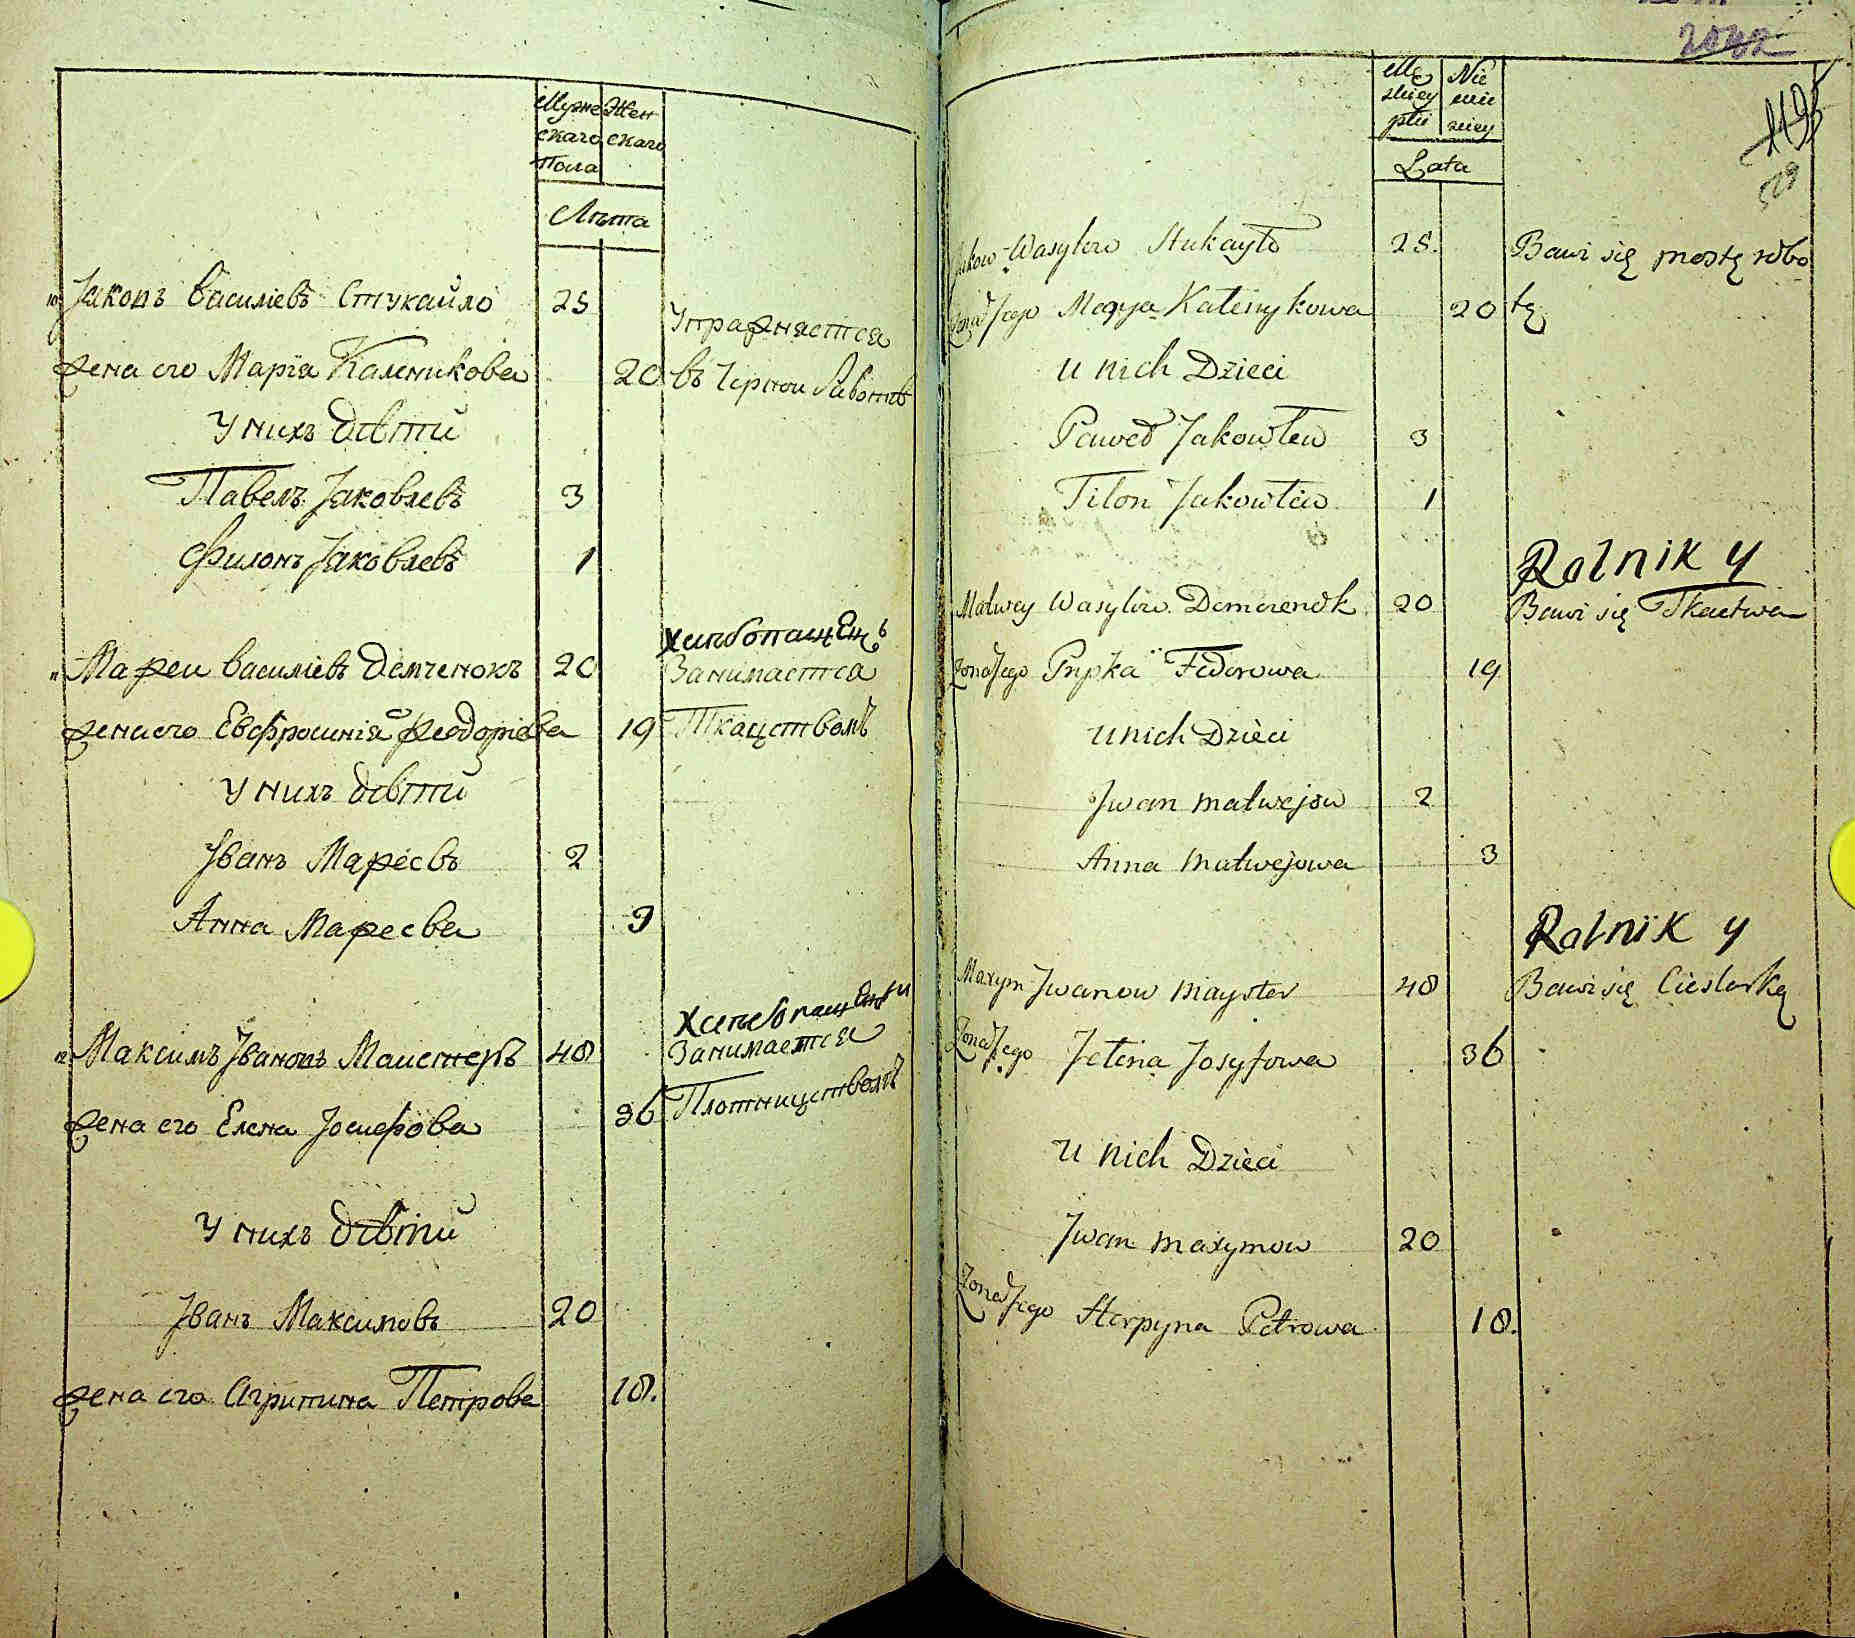 Муже Жен
скаго скаго
Пола
Лѣта
10 Јаковъ Василіевъ Стукайло 25
Упражняется
жена его Марія Каленикова 20 въ Чорной Работѣ
У нихъ Дѣти
Павелъ Јаковлевъ 3
Филонъ Јаковлевъ 1
Хлѣбопащецъ
11 Мафеи Василіевъ Демченокъ 20 Занимается
жена его Евфросинія Феодорова 19 Ткацствомъ
У нихъ дѣти
Јванъ Мафеевъ 2
Анна Мафеева 3
Хлѣбопащецъ и
12 Максимъ Јвановъ Маистеръ 48 Занимается
жена его Елена Јосифова 36 Плотницствомъ
У нихъ дѣти
Јванъ Максимовъ 20
жена его Агрипина Петрова 18.
2042
Mę Nie
skiey wie
płci
Lata
Jakow Wasylow Stukayło 25. Bawi się prostą robo
Zona Jego Marya Kalenykowa 20 tą
u nich Dzieci
Paweł Jakowlew 3
Filon Jakowlew 1
Rolnik y
Matwey Wasylow Demczenok 20 Bawi się Tkactwa
Zona Jego Prypka Fedorowa 19
u nich Dzieci
Jwan Matwejow 2
Anna Matwejowa 3
Rolnik y
Maxym Jwanow Mayster 48 Bawi się Cieslarką
Zona Jego Jelena Josyfowa 36
u nich Dzieci
Jwan Maxymow 20
Zona Jego Horpyna Petrowa 18.